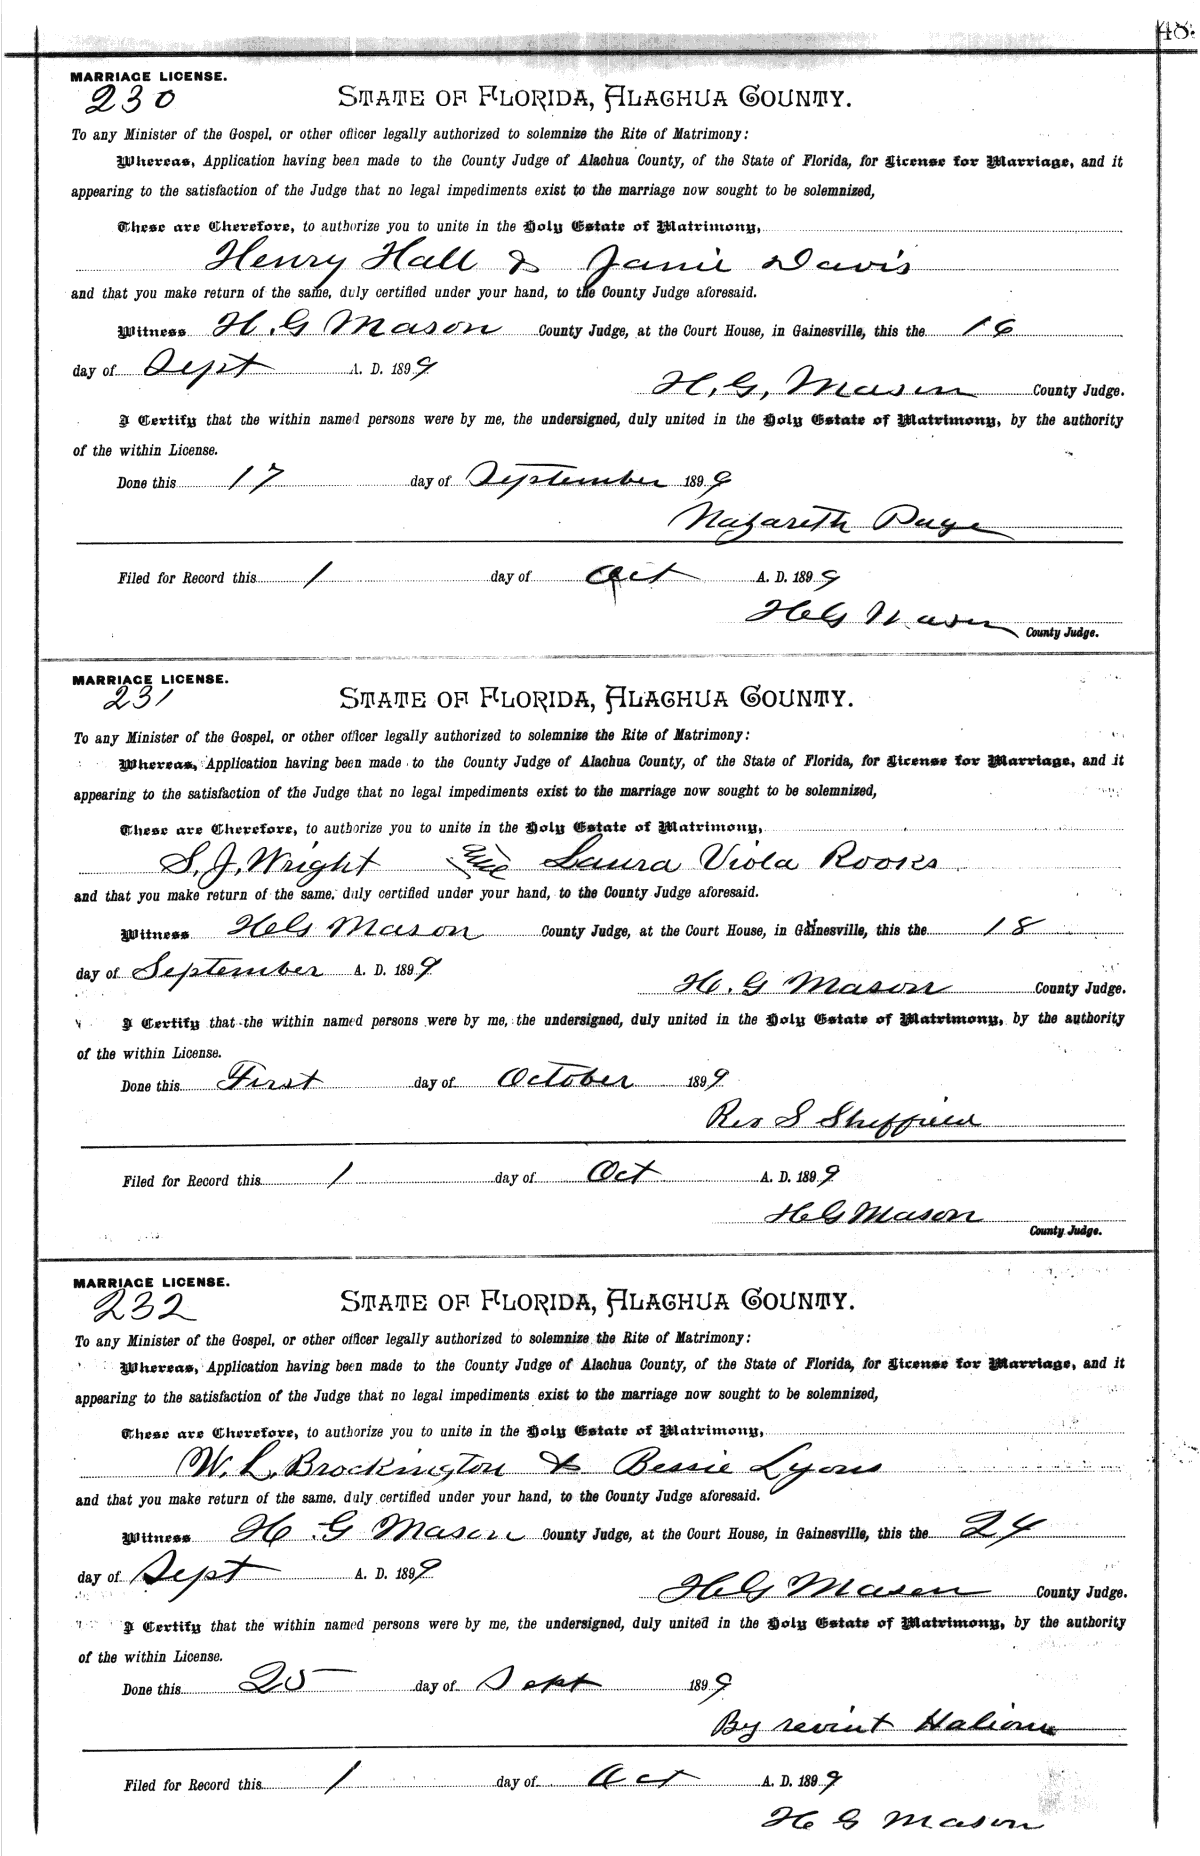 48
MARRIAGE LICENSE.
230
STATE OF FLORIDA, ALACHUA COUNTY.
To any Minister of the Gospel, or other officer legally authorized to solemnize the Rite of Matrimony:
Whereas, Application having been made to the County Judge of Alachua County, of the State of Florida, for License for Marriage, and it
appearing to the satisfaction of the Judge that no legal impediments exist to the marriage now sought to be solemnized,
These are Therefore, to authorize you to unite in the Holy Estate of Matrimony,
Henry Hall & Janie Davis
and that you make return of the same, duly certified under your hand, to the County Judge aforesaid.
Witness H. G Mason County Judge, at the Court House, in Gainesville, this the 16
day of Sept A. D. 1899
H. G, Mason County Judge.
I Certify that the within named persons were by me, the undersigned, duly united in the Holy Estate of Matrimony, by the authority
of the within License.
Done this 17 day of September 1899
Nazareth Page
Filed for Record this 1 day of Oct A. D. 1899
H G Mason
County Judge.
MARRIAGE LICENSE.
231
STATE OF FLORIDA, ALACHUA COUNTY.
To any Minister of the Gospel, or other officer legally authorized to solemnize the Rite of Matrimony:
Whereas, Application having been made to the County Judge of Alachua County, of the State of Florida, for License for Marriage, and it
appearing to the satisfaction of the Judge that no legal impediments exist to the marriage now sought to be solemnized,
These are Therefore, to authorize you to unite in the Holy Estate of Matrimony,
S. J. Wright Laura Viola Rooks
and that you make return of the same, duly certified under your hand, to the County Judge aforesaid.
Witness H G Mason County Judge, at the Court House, in Gainesville, this the 18
day of September A. D. 1899
H. G Mason County Judge.
I Certify that the within named persons were by me, the undersigned, duly united in the Holy Estate of Matrimony, by the authority
of the within License.
Done this First day of October 1899
Rev S Sheffield
Filed for Record this 1 day of Oct A. D. 1899
H G Mason
County Judge.
MARRIAGE LICENSE.
232
STATE OF FLORIDA, ALACHUA COUNTY.
To any Minister of the Gospel, or other officer legally authorized to solemnize the Rite of Matrimony:
Whereas, Application having been made to the County Judge of Alachua County, of the State of Florida, for License for Marriage, and it
appearing to the satisfaction of the Judge that no legal impediments exist to the marriage now sought to be solemnized,
These are Therefore, to authorize you to unite in the Holy Estate of Matrimony,
W. L. Brockington & Bessie Lyons
and that you make return of the same, duly certified under your hand, to the County Judge aforesaid.
Witness H G Mason County Judge, at the Court House, in Gainesville, this the 24
day of Sept A. D. 1899
H G Mason County Judge.
I Certify that the within named persons were by me, the undersigned, duly united in the Holy Estate of Matrimony, by the authority
of the within License.
Done this 25 day of Sept 1899
By
Filed for Record this 1 day of Oct A. D. 1899
H G Mason